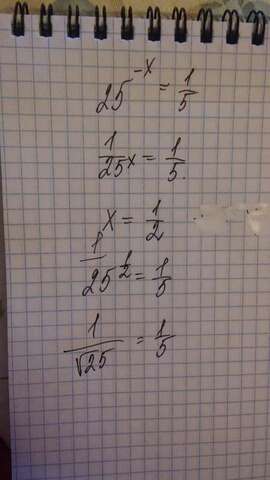 25^{-x} = \frac{1}{5}
\frac{1}{25^x} = \frac{1}{5}.
x = \frac{1}{2}
\frac{1}{25^{\frac{1}{2}}} = \frac{1}{5}
\frac{1}{\sqrt{25}} = \frac{1}{5}